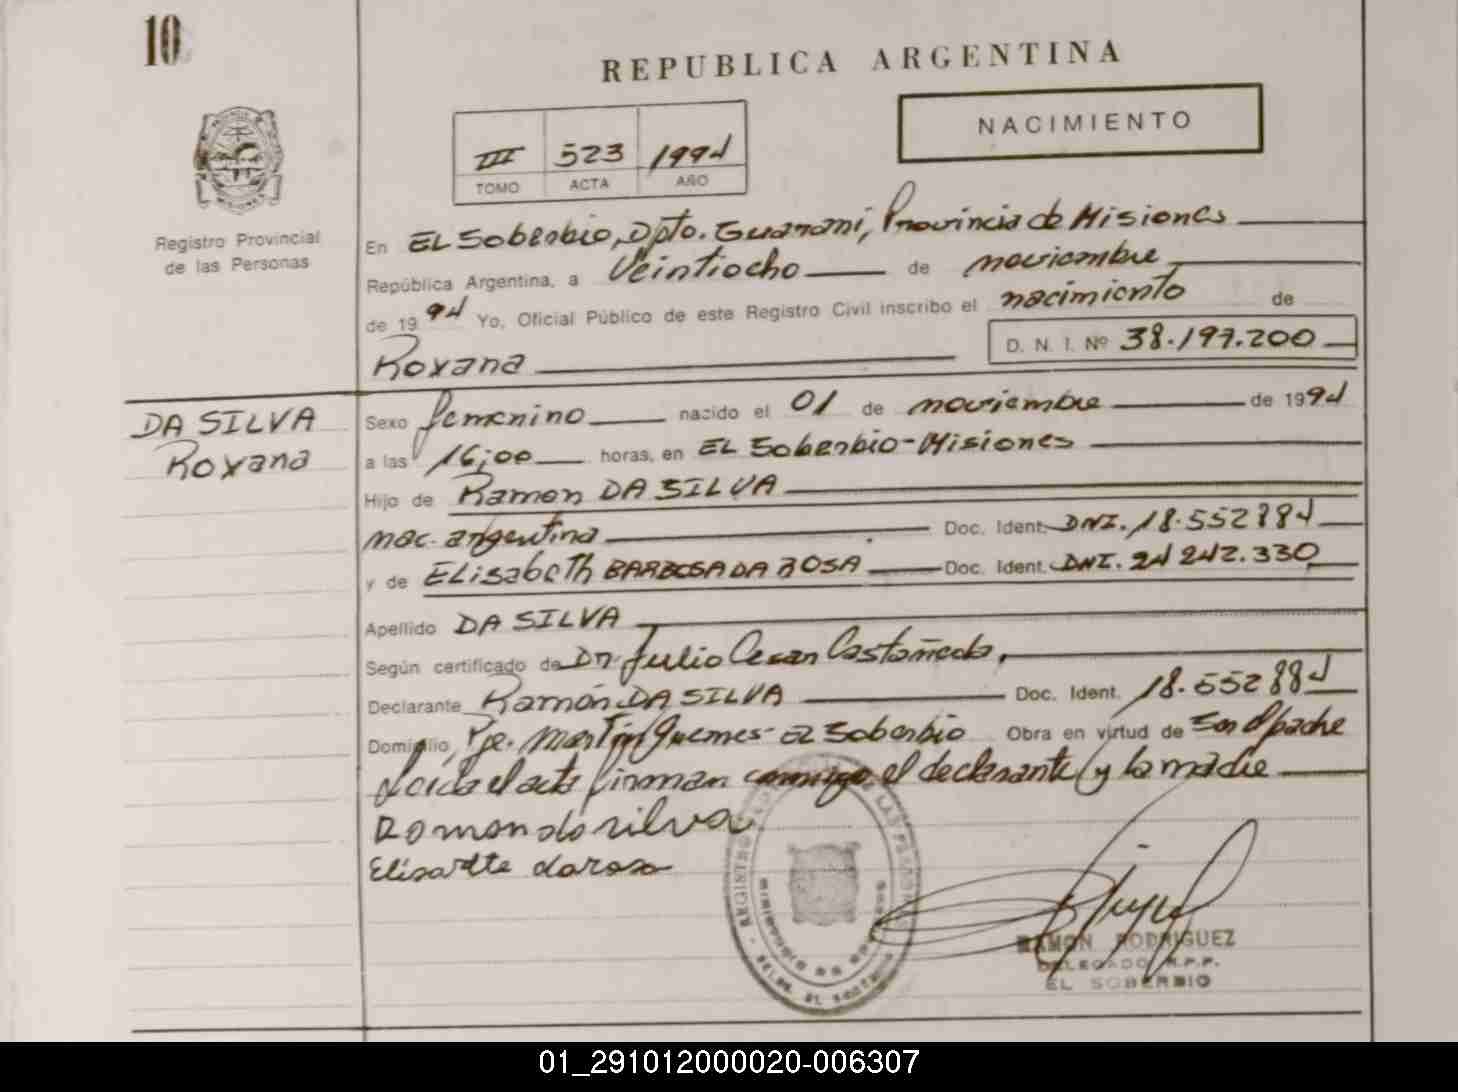 10
REPUBLICA ARGENTINA
NACIMIENTO
III 523 1994
TOMO ACTA AÑO
Registro Provincial
de las Personas
En EL Soberbio, Dpto. Guarani, Provincia de Misiones
República Argentina, a Veintiocho de noviembre
de 1994 Yo, Oficial Público de este Registro Civil inscribo el nacimiento de
Roxana D. N. I. Nº 38.197.200
DA SILVA
Roxana
Sexo femenino nacido el 01 de noviembre de 1994
a las 16;00 horas, en EL Soberbio-Misiones
Hijo de Ramon DA SILVA
nac. argentina Doc. Ident. DNI. 18.552884
y de ELisabeth BARBOSA DA ROSA Doc. Ident. DNI. 24 242.330
Apellido DA SILVA
Según certificado de Dr. Julio Cesar Castañeda,
Declarante Ramón DA SILVA Doc. Ident. 18.552884
Domicilio Pje. Martin Guemes- EL Soberbio Obra en virtud de Ser el padre
Leida el acta firman conmigo el declarante y la madre
Ramon da silva
Elisa darosa
RAMON RODRIGUEZ
DELEGADO R.P.P.
EL SOBERBIO
01_291012000020-006307